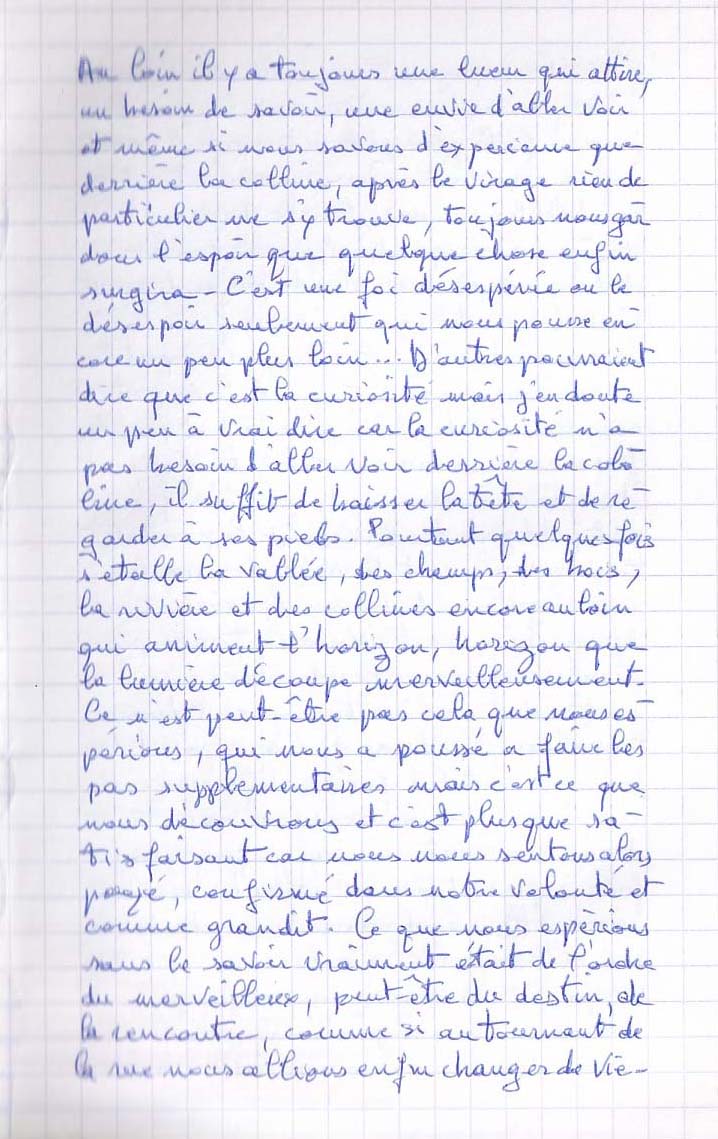 Au loin il y a toujours une lueur qui attire,
un besoin de savoir, une envie d'aller voir
et même si nous savons d'expérience que
derrière la colline, après le virage rien de
particulier ne s'y trouve, toujours nous gar
dons l'espoir que quelque chose enfin
surgira - C'est une foi désespérée ou le
désespoir seulement qui nous pousse en
core un peu plus loin... D'autres pourraient
dire que c'est la curiosité mais j'en doute
un peu à vrai dire car la curiosité n'a
pas besoin d'aller voir derrière la col-
line, il suffit de baisser la tête et de re-
garder à ses pieds. Pourtant quelques fois
s'étalle la vallée, des champs, des bois,
la rivière et des collines encore au loin
qui animent l'horizon, horizon que
la lumière découpe merveilleusement.
Ce n'est peut-être pas cela que nous es-
périons, qui nous a poussé a faire les
pas supplémentaires mais c'est ce que
nous découvrons et c'est plus que sa-
tisfaisant car nous nous sentons alors
payé, confirmé dans notre volonté et
comme grandit. Ce que nous espérions
sans le savoir vraiment était de l'ordre
du merveilleux, peut-être du destin, de
la rencontre, comme si au tournant de
la rue nous allions enfin changer de vie-